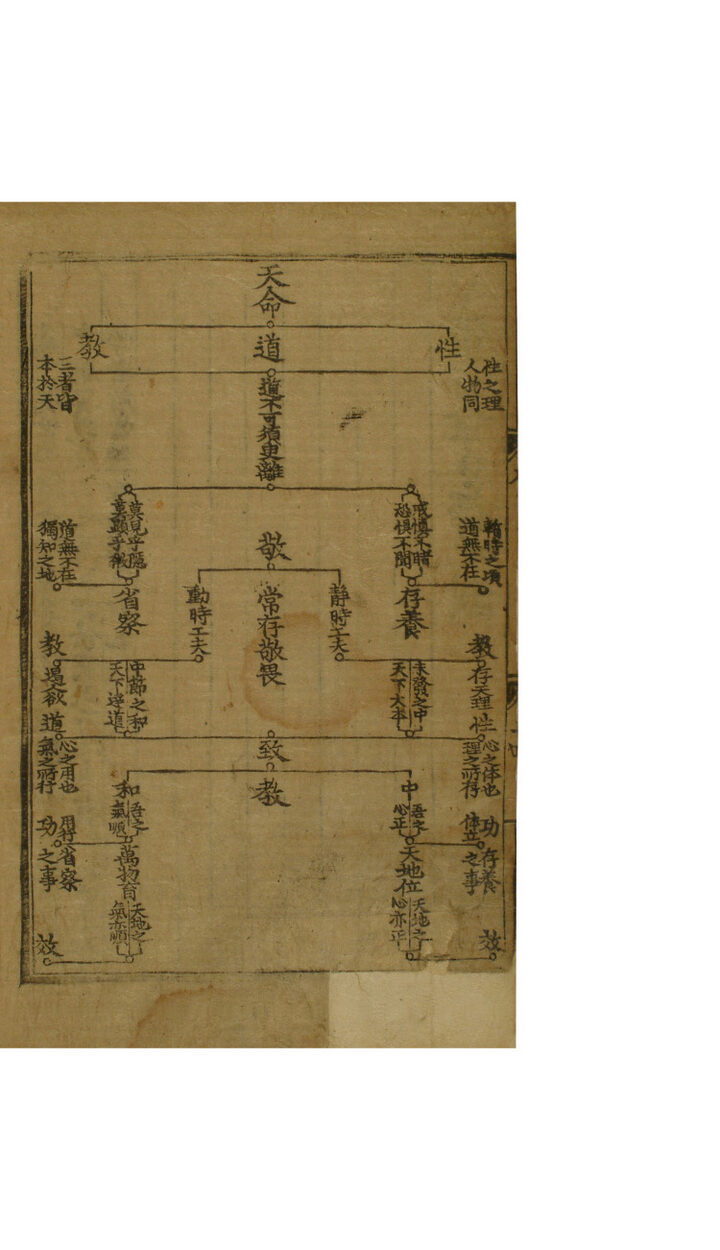 天命
性
道
教
性之理
人物同
三者皆
本於天
道不可須臾離
戒慎不睹
恐惧不聞
莫見乎隱
莫顯乎微
暫時之頃
道無不在
存養
敬
静時工夫
常存敬畏
動時工夫
省察
隨無不在
獨知之地
教
存天理
性
未發之中
天下大本
中節之和
天下達道
教
遏欲
道
心之体也
理之所存
致
教
心之用也
氣之所行
中
吾之
心正
和
吾之
氣順
体立
功
存養
之事
天地位
天地之
心亦正
萬物育
天地之
氣亦順
用行
功
省察
之事
效
效